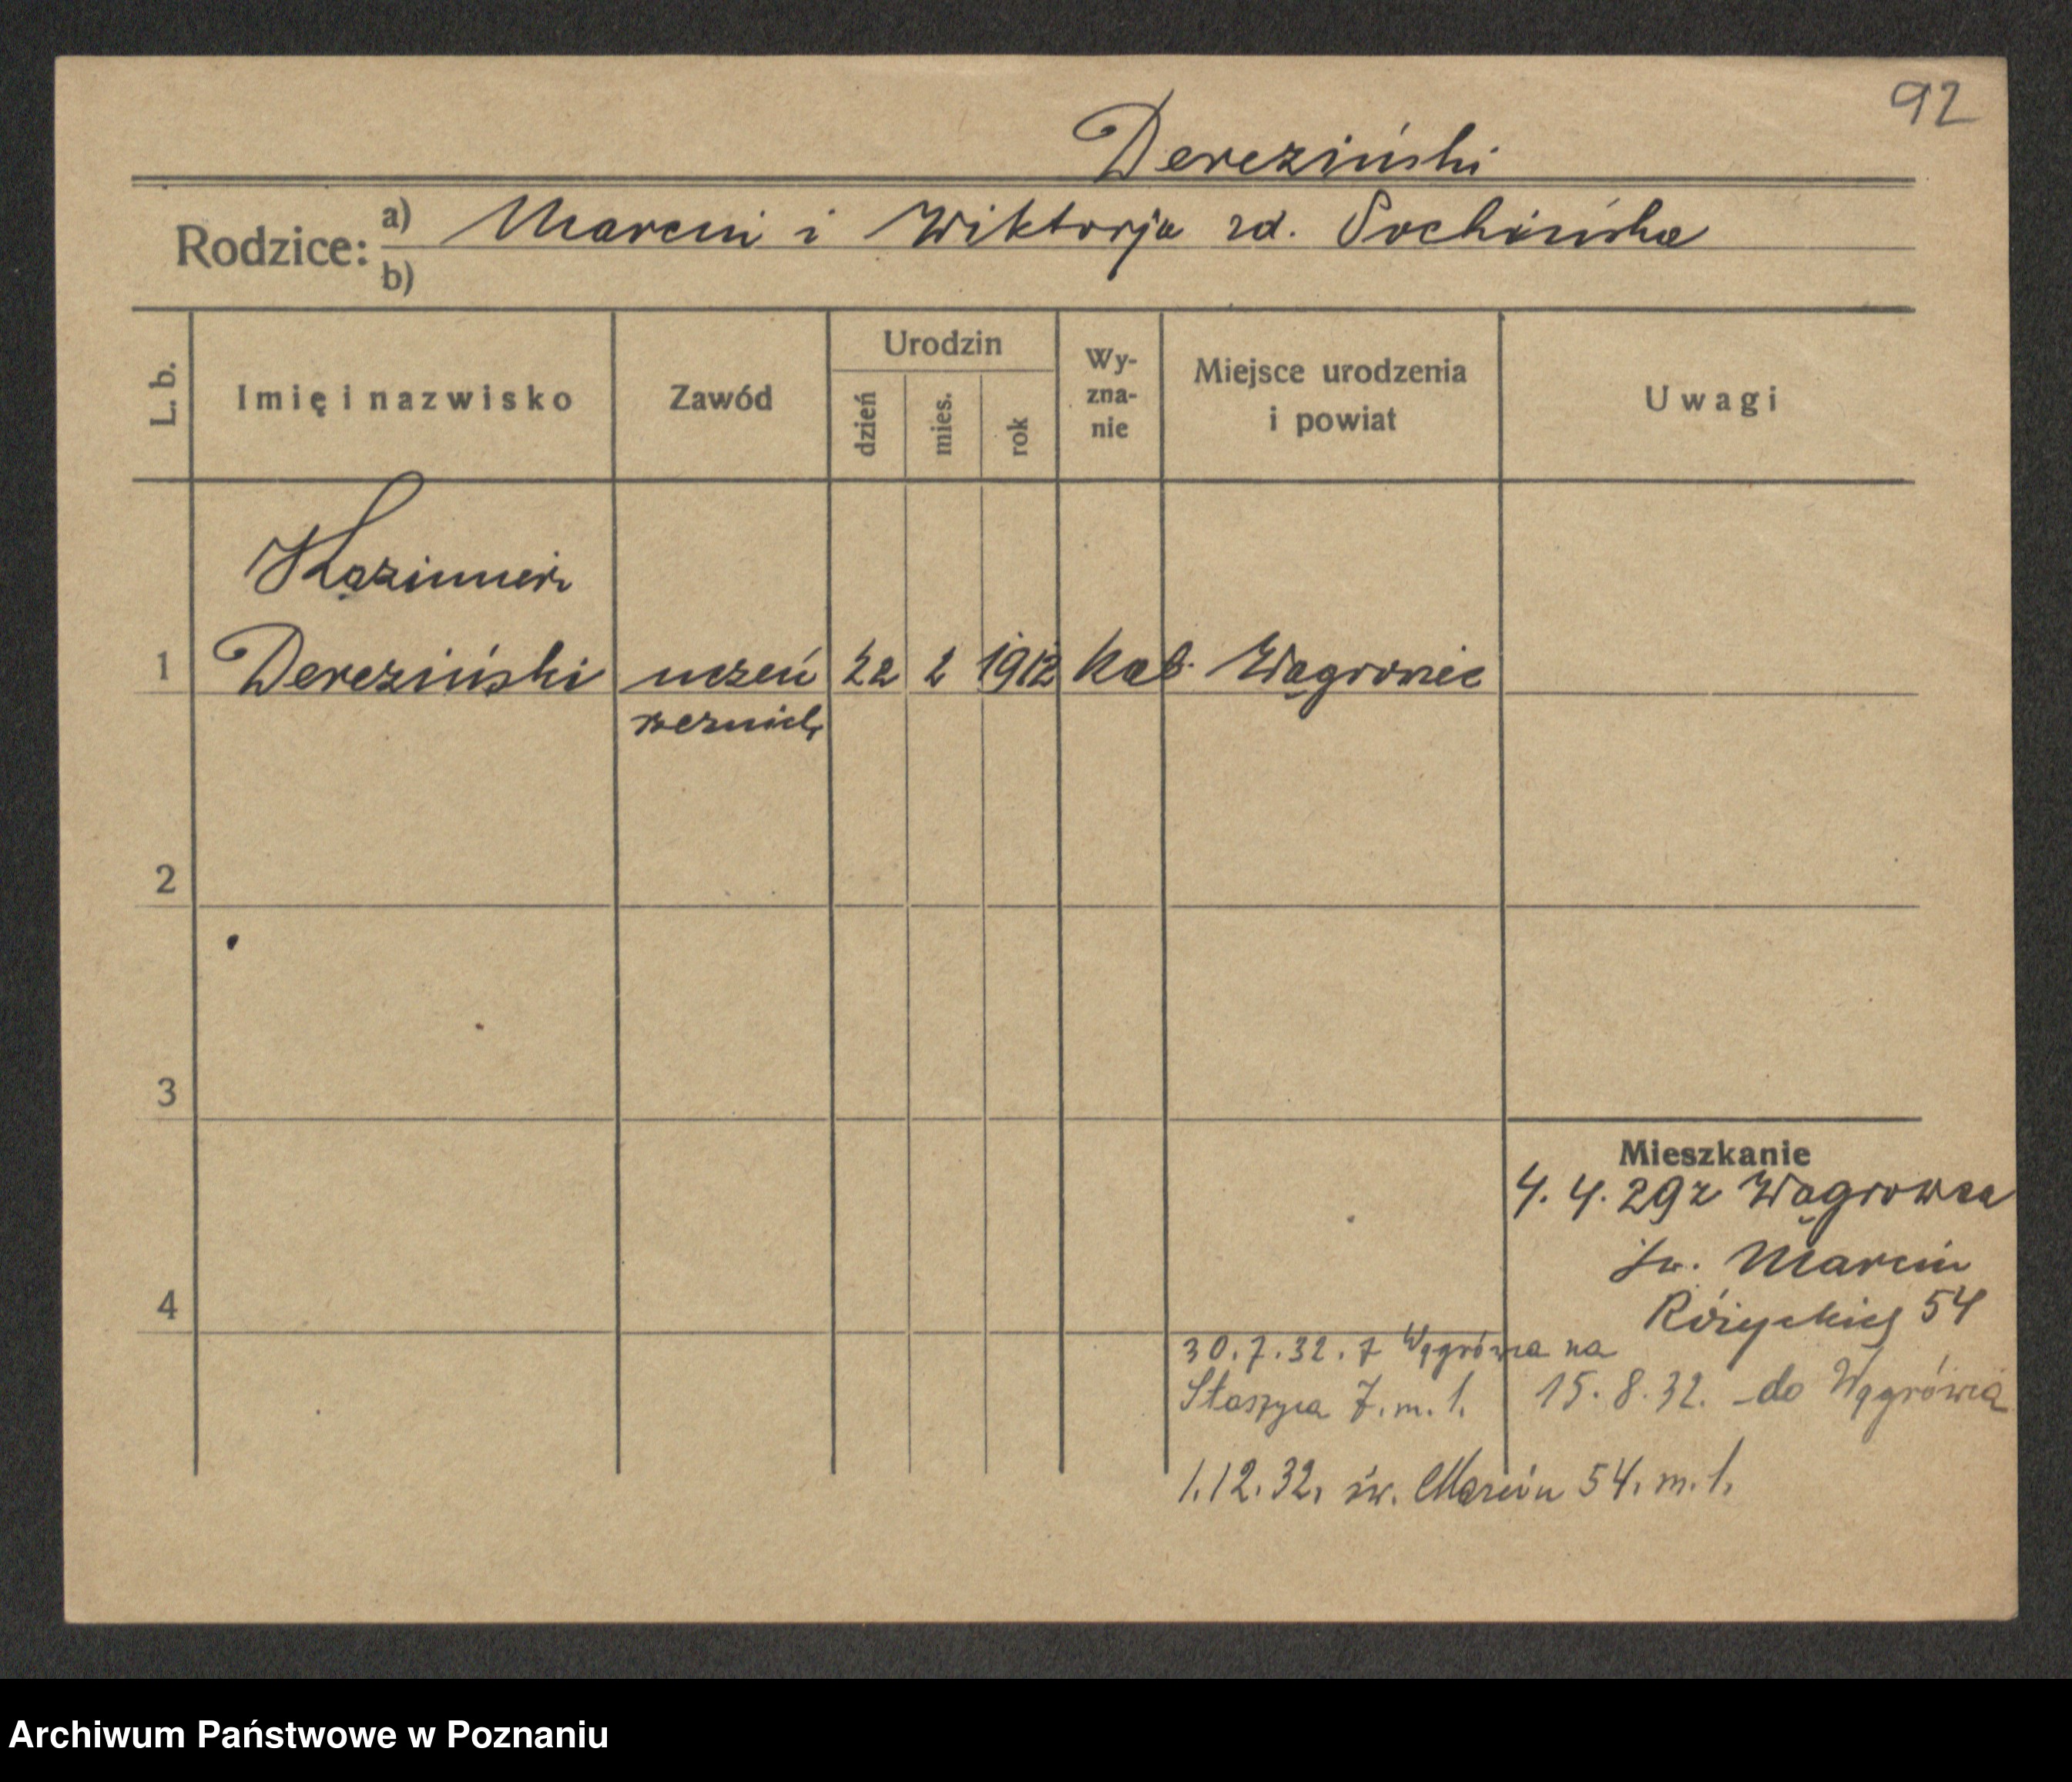 92
Dereziński
Rodzice: a) Marcin i Wiktorja zd. Sochińska
b)
L. b. Imię i nazwisko Zawód Urodzin dzień mies. rok Wyznanie Miejsce urodzenia i powiat Uwagi
Kazimierz
1 Dereziński uczeń 22 2 1912 kat. Wągrowiec
rzeźnick.
2
3
Mieszkanie
4. 4. 29 z Wągrowca
św. Marcin
4 54
30.7.32. z Wągrówca na
Staszyca 7. m. 1. 15. 8. 32. do Wągrówca
1.12.32. św. Marcin 54. m. 1.
Archiwum Państwowe w Poznaniu